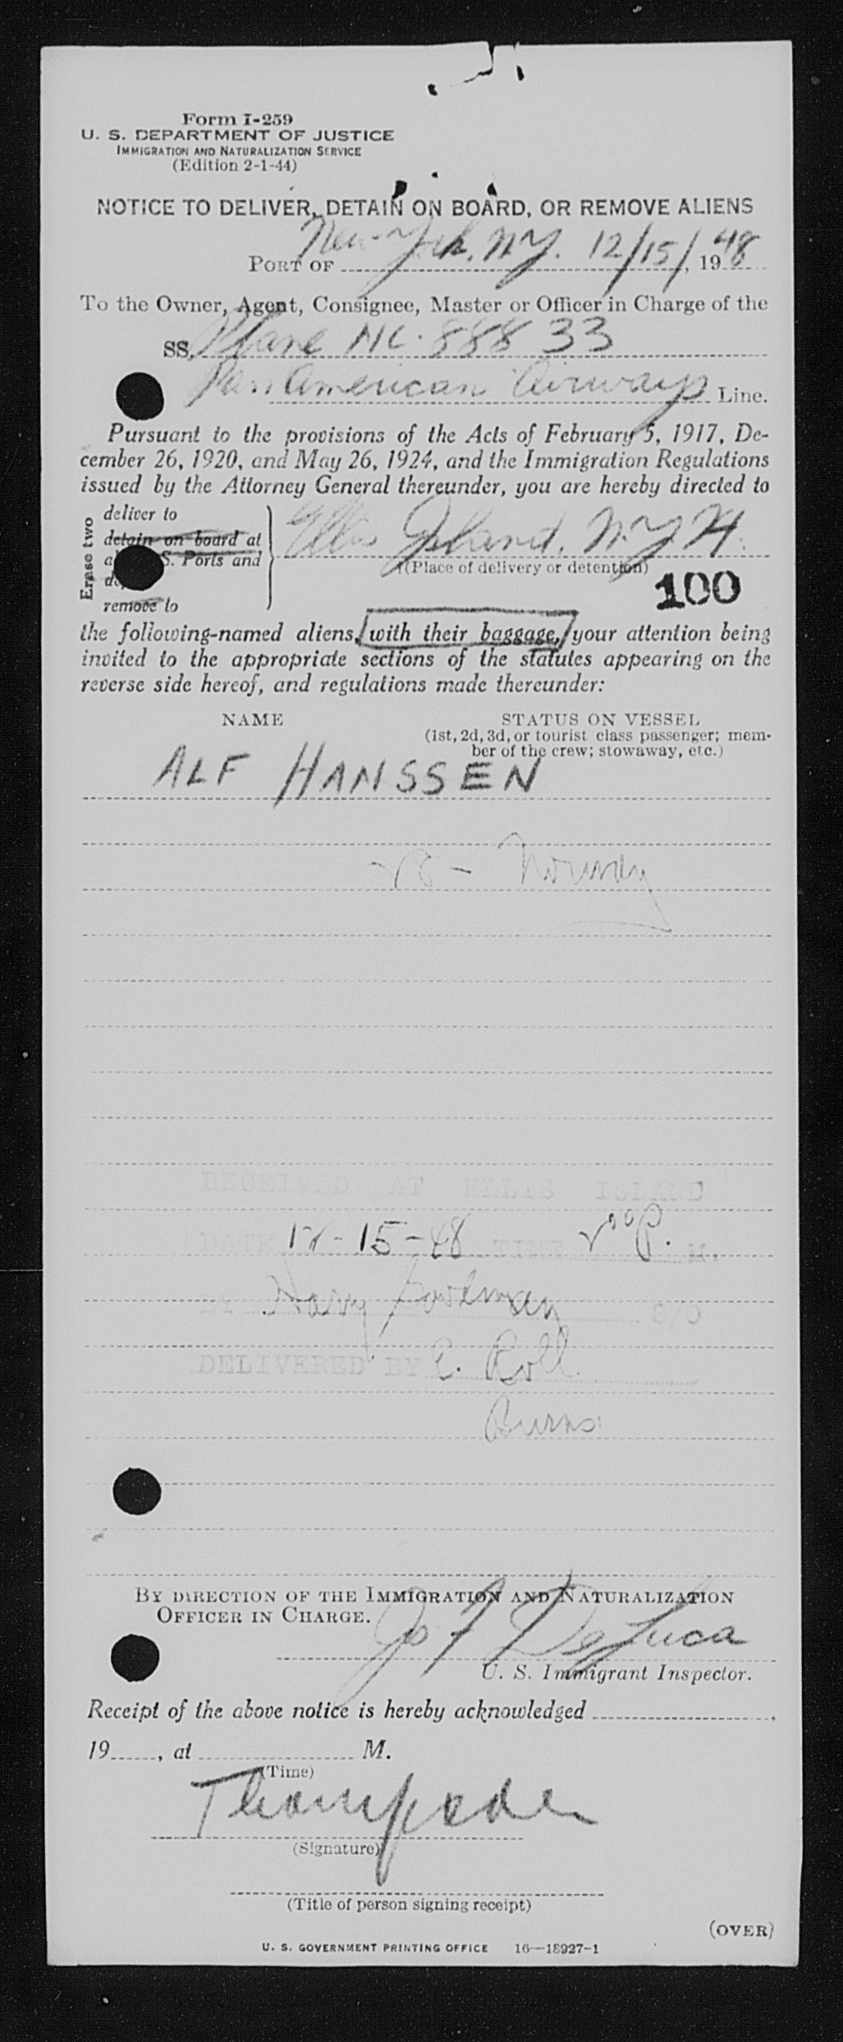 Form I-259
U. S. DEPARTMENT OF JUSTICE
IMMIGRATION AND NATURALIZATION SERVICE
(Edition 2-1-44)
NOTICE TO DELIVER, DETAIN ON BOARD, OR REMOVE ALIENS
PORT OF New York, N.Y. 12/15/, 1948
To the Owner, Agent, Consignee, Master or Officer in Charge of the
SS. Plane NC. 88833
Pan American Airways Line.
Pursuant to the provisions of the Acts of February 5, 1917, De-
cember 26, 1920, and May 26, 1924, and the Immigration Regulations
issued by the Attorney General thereunder, you are hereby directed to
Erase two
deliver to
detain on board at
S. Ports and
remove to
Ellis Island, N.Y.H.
(Place of delivery or detention)
100
the following-named aliens, with their baggage, your attention being
invited to the appropriate sections of the statutes appearing on the
reverse side hereof, and regulations made thereunder:
NAME STATUS ON VESSEL
(1st, 2d, 3d, or tourist class passenger; mem-
ber of the crew; stowaway, etc.)
ALF HANSSEN
28 - Norway
RECEIVED AT ELLIS ISLAND
DATE 12-15-48 TIME 2:00 P. M.
BY Harry S/O
DELIVERED BY C. Roll
Burns
BY DIRECTION OF THE IMMIGRATION AND NATURALIZATION
OFFICER IN CHARGE.
Jos F DeLuca
U. S. Immigrant Inspector.
Receipt of the above notice is hereby acknowledged ,
19 , at M.
(Time)
(Signature)
(Title of person signing receipt)
(OVER)
U. S. GOVERNMENT PRINTING OFFICE 16—18927-1